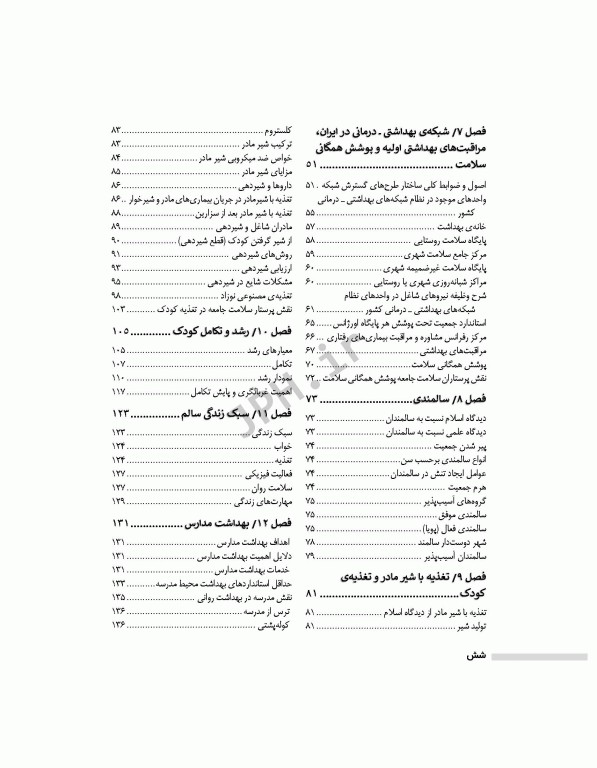 فصل ۷/ شبکه‌ی بهداشتی ـ درمانی در ایران،
مراقبت‌های بهداشتی اولیه و پوشش همگانی
سلامت ............ ۵۱
اصول و ضوابط کلی ساختار طرح‌های گسترش شبکه . ۵۱
واحدهای موجود در نظام شبکه‌های بهداشتی ـ درمانی
کشور ............ ۵۵
خانه‌ی بهداشت ............ ۵۷
پایگاه سلامت روستایی ............ ۵۸
مرکز جامع سلامت شهری ............ ۵۹
پایگاه سلامت غیرضمیمه شهری ............ ۶۰
مراکز شبانه‌روزی شهری یا روستایی ............ ۶۰
شرح وظیفه نیروهای شاغل در واحدهای نظام
شبکه‌های بهداشتی ـ درمانی کشور ............ ۶۱
استاندارد جمعیت تحت پوشش هر پایگاه اورژانس ...... ۶۵
مرکز رفرانس مشاوره و مراقبت بیماری‌های رفتاری ... ۶۶
مراقبت‌های بهداشتی ............ ۶۷
پوشش همگانی سلامت ............ ۷۰
نقش پرستاران سلامت جامعه پوشش همگانی سلامت .. ۷۲
فصل ۸/ سالمندی ............ ۷۳
دیدگاه اسلام نسبت به سالمندان ............ ۷۳
دیدگاه علمی نسبت به سالمندان ............ ۷۳
پیر شدن جمعیت ............ ۷۴
انواع سالمندی برحسب سن ............ ۷۴
عوامل ایجاد تنش در سالمندان ............ ۷۴
هرم جمعیت ............ ۷۴
گروه‌های آسیب‌پذیر ............ ۷۵
سالمندی موفق ............ ۷۵
سالمندی فعال (پویا) ............ ۷۵
شهر دوست‌دار سالمند ............ ۷۸
سالمندان آسیب‌پذیر ............ ۷۹
فصل ۹/ تغذیه با شیر مادر و تغذیه‌ی
کودک ............ ۸۱
تغذیه با شیر مادر از دیدگاه اسلام ............ ۸۱
تولید شیر ............ ۸۱
کلستروم ............ ۸۳
ترکیب شیر مادر ............ ۸۳
خواص ضد میکروبی شیر مادر ............ ۸۴
مزایای شیر مادر ............ ۸۵
داروها و شیردهی ............ ۸۶
تغذیه با شیرمادر در جریان بیماری‌های مادر و شیرخوار .. ۸۶
تغذیه با شیر مادر بعد از سزارین ............ ۸۸
مادران شاغل و شیردهی ............ ۸۹
از شیر گرفتن کودک (قطع شیردهی) ............ ۹۰
روش‌های شیردهی ............ ۹۱
ارزیابی شیردهی ............ ۹۳
مشکلات شایع در شیردهی ............ ۹۵
تغذیه‌ی مصنوعی نوزاد ............ ۹۸
نقش پرستار سلامت جامعه در تغذیه کودک ............ ۱۰۳
فصل ۱۰/ رشد و تکامل کودک ............ ۱۰۵
معیارهای رشد ............ ۱۰۵
تکامل ............ ۱۰۷
نمودار رشد ............ ۱۱۰
اهمیت غربالگری و پایش تکامل ............ ۱۱۷
فصل ۱۱/ سبک زندگی سالم ............ ۱۲۳
سبک زندگی ............ ۱۲۳
خواب ............ ۱۲۴
تغذیه ............ ۱۲۴
فعالیت فیزیکی ............ ۱۲۷
سلامت روان ............ ۱۲۷
مهارت‌های زندگی ............ ۱۲۹
فصل ۱۲/ بهداشت مدارس ............ ۱۳۱
اهداف بهداشت مدارس ............ ۱۳۱
دلایل اهمیت بهداشت مدارس ............ ۱۳۱
خدمات بهداشت مدارس ............ ۱۳۱
حداقل استانداردهای بهداشت محیط مدرسه ............ ۱۳۳
نقش مدرسه در بهداشت روانی ............ ۱۳۵
ترس از مدرسه ............ ۱۳۶
کوله‌پشتی ............ ۱۳۶
شش
JPH.ir